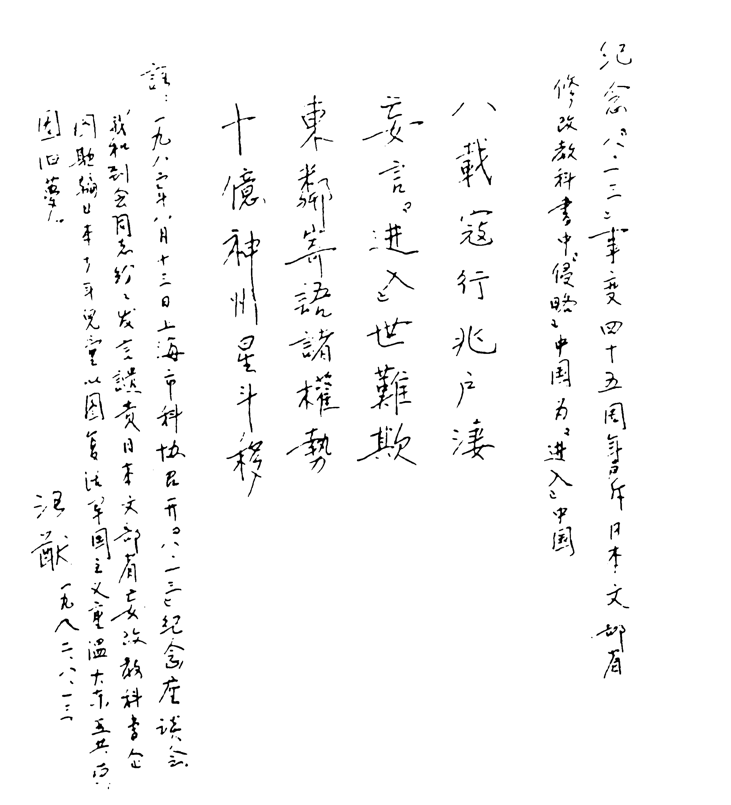 纪念“八·一三”事变四十五周年日本文部省
修改教科书中“侵略”中国为“进入”中国
八載寇行兆户淒
妄言“进入”世難欺
東鄰寄語諸權勢
十億神州星斗移
註：一九八二年八月十三日上海市科协召开“八·一三”纪念座谈会
我和到会同志纷纷发言譴责日本文部省妄改教科書企
图欺骗日本少年兒童以图复活军国主义重温大东亚共
圈旧夢。
汪猷
一九八二、八、一三